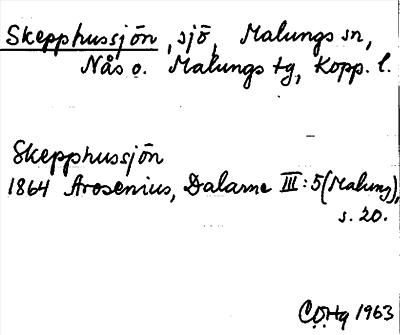 Skepphussjön, sjö, Malungs sn,
Nås o. Malungs tg, Kopp. l.
Skepphussjön
1864 Arosenius, Dalarne III:5 (Malung),
s. 20.
CÖHg 1963